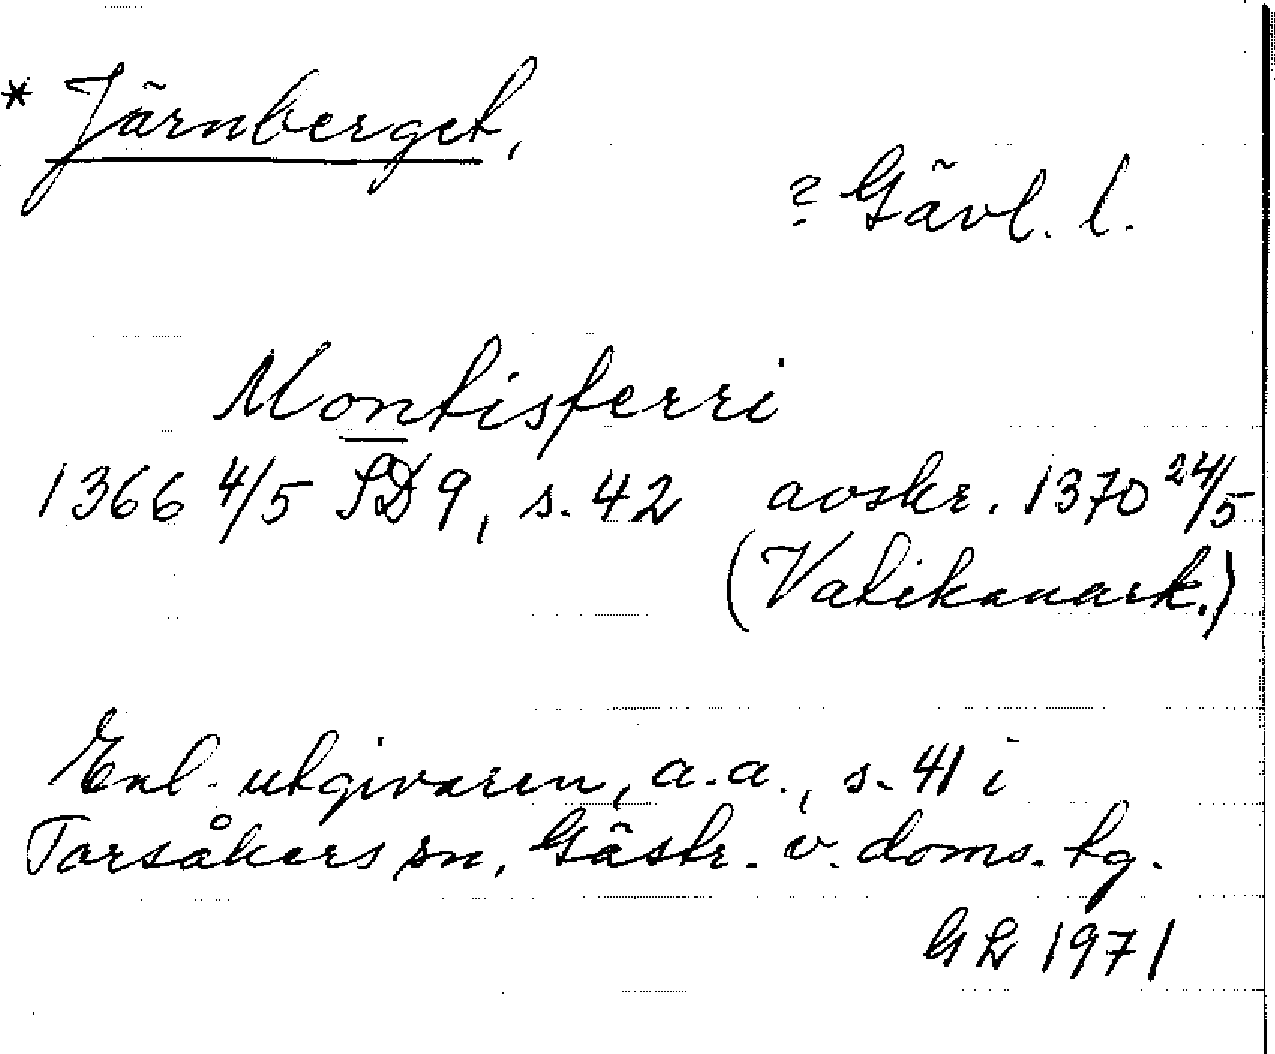 * Järnberget,
? Gävl. l.
Montisferri
1366 4/5 SD 9, s. 42 avskr. 1370 24/5
(Vatikanark.)
Enl. utgivaren, a.a., s. 41 i
Torsåkers sn, Gästr. v. doms. tg.
GL 1971